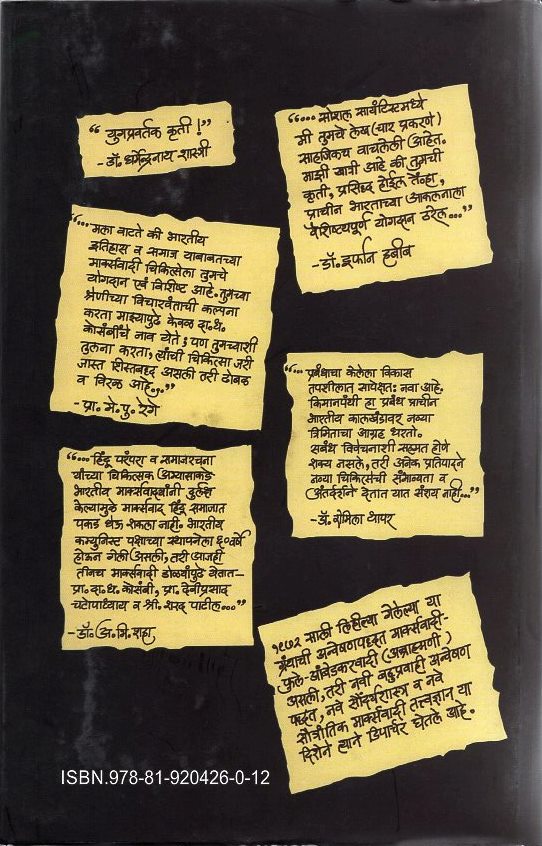 “ युगप्रवर्तक कृती !”
- डॉ. धर्मेन्द्रनाथ शास्त्री
“... सोशल सायंटिस्टमध्ये
मी तुमचे लेख (चार प्रकरणे)
साहजिकच वाचलेली आहेत.
माझी खात्री आहे की तुमची
कृती, प्रसिध्द होईल तेंव्हा,
प्राचीन भारताच्या आकलनाला
वैशिष्ट्यपूर्ण योगदान ठरेल...”
- डॉ. इर्फान हबीब
“... मला वाटते की भारतीय
इतिहास व समाज याबाबतच्या
मार्क्सवादी चिकित्सेला तुमचे
योगदान एवं विशिष्ट आहे. तुमच्या
श्रेणीच्या विचारवंताची कल्पना
करता माझ्यापुढे केवळ दा. ध.
कोसंबींचे नाव येते; पण तुमच्याशी
तुलना करता, त्यांची चिकित्सा जरी
जास्त शिस्तबध्द असली तरी ढोबळ
व विरळ आहे...”
- प्रा. मे. पु. रेगे
“... प्रबंधाचा केलेला विकास
तपशीलात सापेक्षतः नवा आहे.
किमानपक्षी हा प्रबंध प्राचीन
भारतीय कालखंडावर नव्या
त्रिमिताचा आग्रह धरतो.
सबंध विवेचनाशी सहमत होणे
शक्य नसले, तरी अनेक प्रतिपादने
नव्या चिकित्सेची संभाव्यता व
अंतर्दर्शने देतात यात संशय नाही...”
- डॉ. रोमिला थापर
“... हिंदू परंपरा व समाजरचना
यांच्या चिकित्सक अभ्यासाकडे
भारतीय मार्क्सवाद्यांनी दुर्लक्ष
केल्यामुळे मार्क्सवाद हिंदू समाजात
पकड घेऊ शकला नाही. भारतीय
कम्युनिस्ट पक्षाच्या स्थापनेला ६० वर्षे
होऊन गेली असली, तरी आजही
तीनच मार्क्सवादी डोळ्यांपुढे येतात-
प्रा. दा. ध. कोसंबी, प्रा. देवीप्रसाद
चटोपाध्याय व श्री. शरद पाटील...”
- डॉ. अ. भि. शहा
१९७२ साली लिहील्या गेलेल्या या
ग्रंथाची अन्वेषणपद्धत मार्क्सवादी-
फुले-आंबेडकरवादी (अब्राह्मणी)
असली, तरी नवी बहुप्रवाही अन्वेषण
पद्धत, नवे सौंदर्यशास्त्र व नवे
सौत्रांतिक मार्क्सवादी तत्त्वज्ञान या
दिशेने ह्याने डिपार्चर घेतले आहे.
ISBN.978-81-920426-0-12